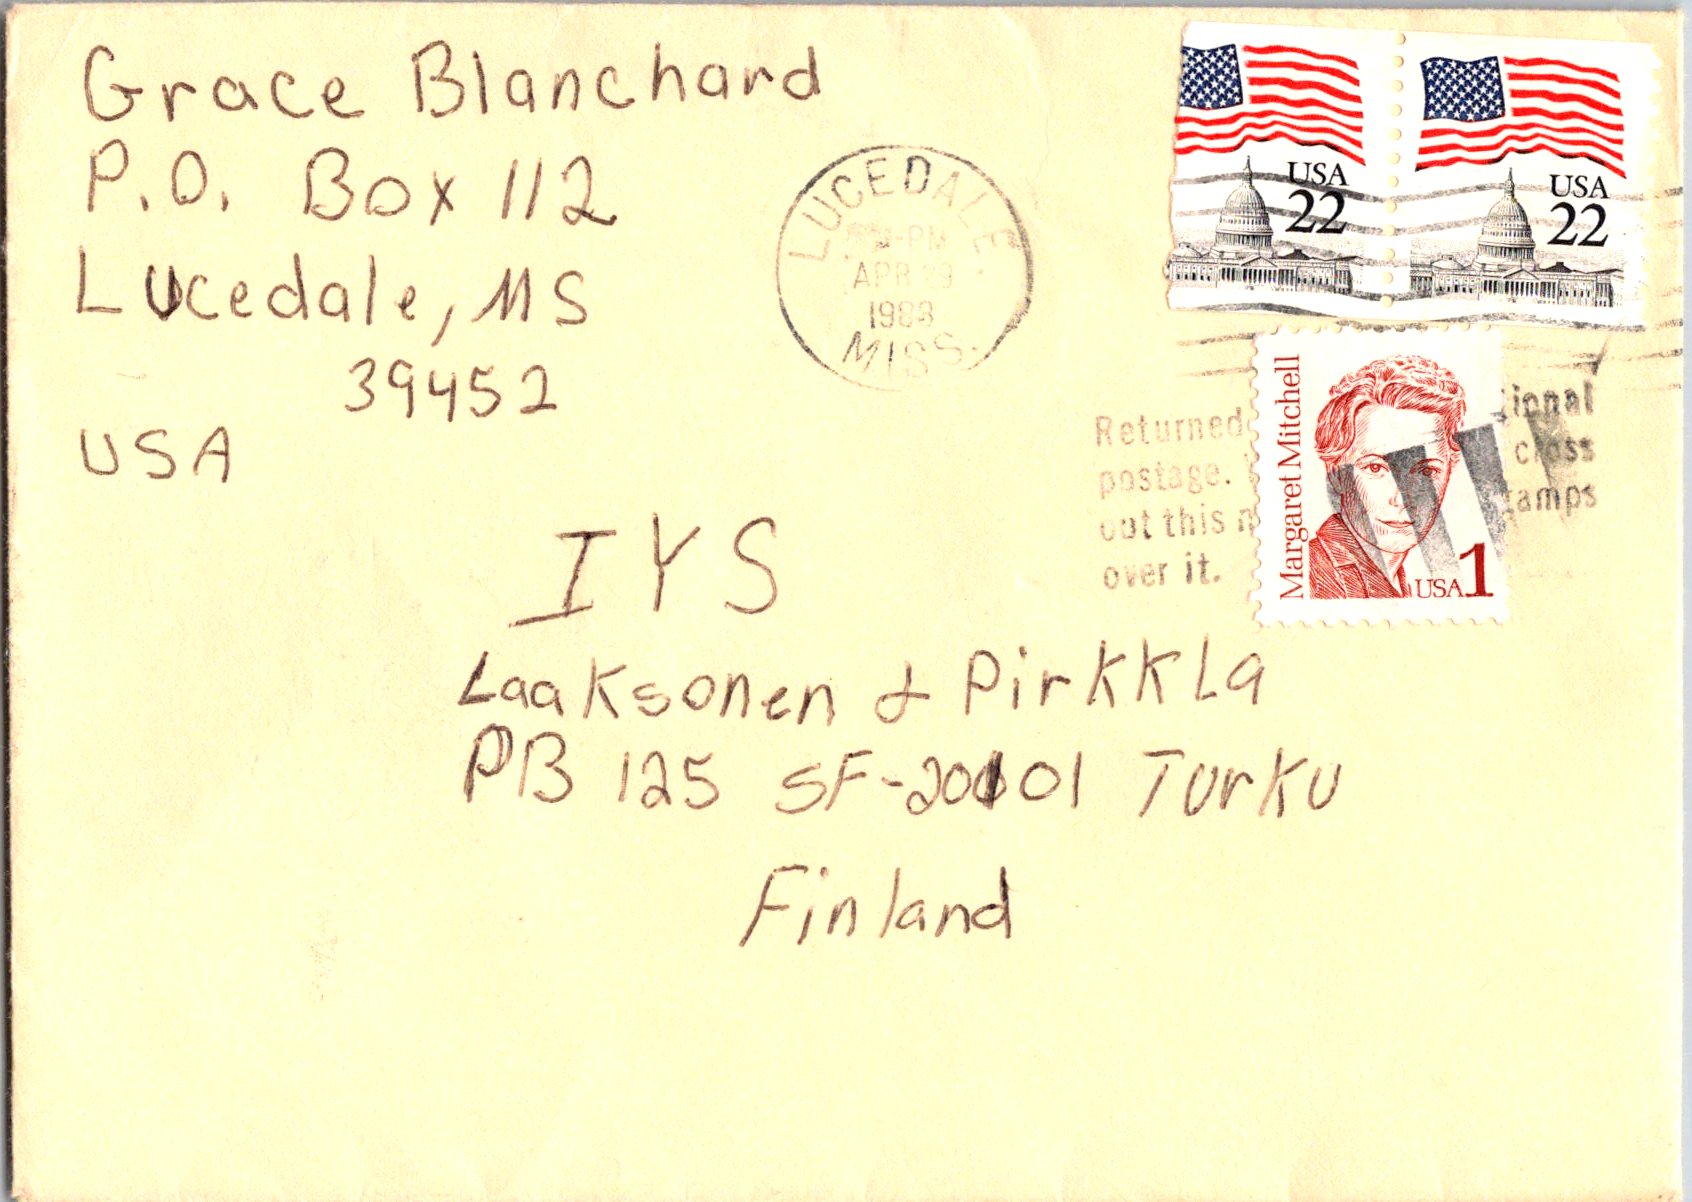 Grace Blanchard
P.O. Box 112
Lucedale, MS
39452
USA
LUCEDALE
PM
APR 29
1988
MISS.
USA
22
USA
22
Returned
postage.
out this
over it.
class
Margaret Mitchell
USA 1
IYS
Laaksonen & Pirkkla
PB 125 SF-20101 Turku
Finland